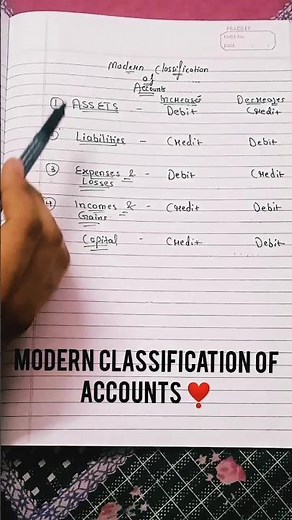 Modern Classification
of
Accounts
Increases Decreases
① ASSETS - Debit Credit
Liabilities - Credit Debit
③ Expenses & - Debit Credit
Losses
④ Incomes & - Credit Debit
Gains
Capital - Credit Debit
MODERN CLASSIFICATION OF
ACCOUNTS ❣️